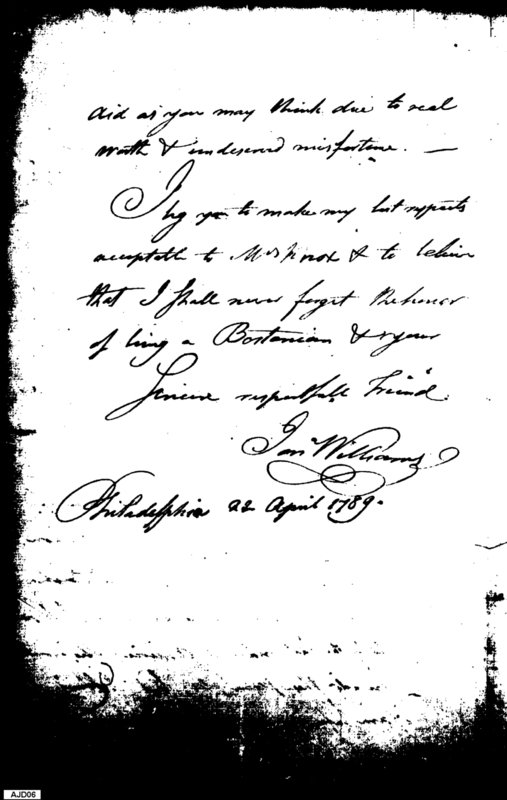 aid as you may think due to real
worth & undeserved misfortune. —
I beg you to make my best respects
acceptable to Mrs Knox & to believe
that I shall never forget the honor
of being a Bostonian & your
Sincere respectfull Friend
Jonn Williams
Philadelphia 22 April 1789.
AJD06